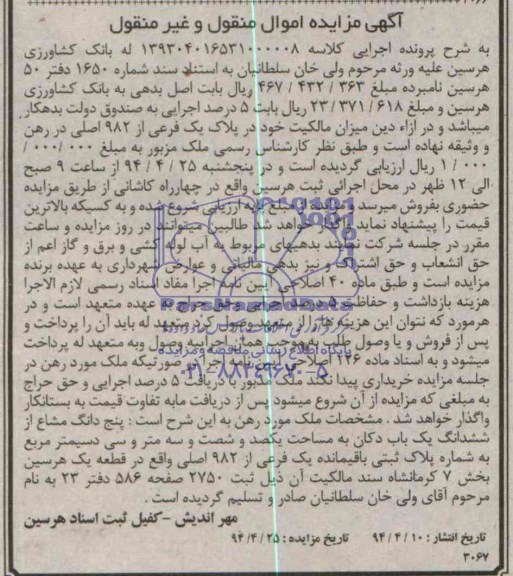 آگهی مزایده اموال منقول و غیر منقول
به شرح پرونده اجرایی کلاسه ۱۳۹۳۰۴۰۱۶۵۳۱۰۰۰۰۰۸ له بانک کشاورزی
هرسین علیه ورثه مرحوم ولی خان سلطانیان به استناد سند شماره ۱۶۵۰ دفتر ۵۰
هرسین نامبرده مبلغ ۳۶۳ / ۴۳۲ / ۴۶۷ ریال بابت اصل بدهی به بانک کشاورزی
هرسین و مبلغ ۶۱۸ / ۳۷۱ / ۲۳ ریال بابت ۵ درصد اجرایی به صندوق دولت بدهکار
میباشد و در ازاء دین میزان مالکیت خود در پلاک یک فرعی از ۹۸۲ اصلی در رهن
و وثیقه نهاده است و طبق نظر کارشناس رسمی ملک مزبور به مبلغ ۰۰۰ / ۰۰۰ /
۰۰۰ / ۱ ریال ارزیابی گردیده است و در پنجشنبه ۲۵ / ۴ / ۹۴ از ساعت ۹ صبح
الی ۱۲ ظهر در محل اجرائی ثبت هرسین واقع در چهارراه کاشانی از طریق مزایده
حضوری بفروش میرسد مزایده از مبلغ پایه ارزیابی شروع شده و به کسیکه بالاترین
قیمت را پیشنهاد نماید واگذار خواهد شد طالبین میتوانند در روز مزایده و ساعت
مقرر در جلسه شرکت نمایند بدهیهای مربوط به آب لوله کشی و برق و گاز اعم از
حق انشعاب و حق اشتراک و نیز بدهی مالیاتی و عوارض شهرداری به عهده برنده
مزایده است و طبق ماده ۴۰ اصلاحی آیین نامه اجرا مفاد اسناد رسمی لازم الاجرا
هزینه بازداشت و حفاظت ۵ درصد اجرایی وحق حراج به عهده متعهد است و در
هرمورد که نتوان این هزینه ها را از متعهد وصول کرد متعهد له باید آن را پرداخت و
پس از فروش و یا وصول طلب به موجب همان اجراییه وصول وبه متعهد له پرداخت
میشود و به اسناد ماده ۱۲۶ اصلاحی آیین نامه اجرا در صورتیکه ملک مورد رهن در
جلسه مزایده خریداری پیدا نکند ملک مذبور با دریافت ۵ درصد اجرایی و حق حراج
به مبلغی که مزایده از آن شروع میشود پس از دریافت مابه تفاوت قیمت به بستانکار
واگذار خواهد شد . مشخصات ملک مورد رهن به این شرح است : پنج دانگ مشاع از
ششدانگ یک باب دکان به مساحت یکصد و شصت و سه متر و سی دسیمتر مربع
به شماره پلاک ثبتی باقیمانده یک فرعی از ۹۸۲ اصلی واقع در قطعه یک هرسین
بخش ۷ کرمانشاه سند مالکیت آن ذیل ثبت ۲۷۵۰ صفحه ۵۸۶ دفتر ۲۳ به نام
مرحوم آقای ولی خان سلطانیان صادر و تسلیم گردیده است .
مهر اندیش -کفیل ثبت اسناد هرسین
تاریخ انتشار : ۱۰ / ۴ / ۹۴ تاریخ مزایده : ۲۵ / ۴ / ۹۴
۳۰۶۷
ParsNamadData
پایگاه اطلاع رسانی مناقصه و مزایده
۰۲۱-۸۸۳۴۹۶۷۰-۵